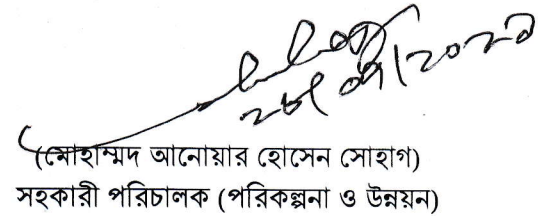 (মোহাম্মদ আনোয়ার হোসেন সোহাগ)
সহকারী পরিচালক (পরিকল্পনা ও উন্নয়ন)